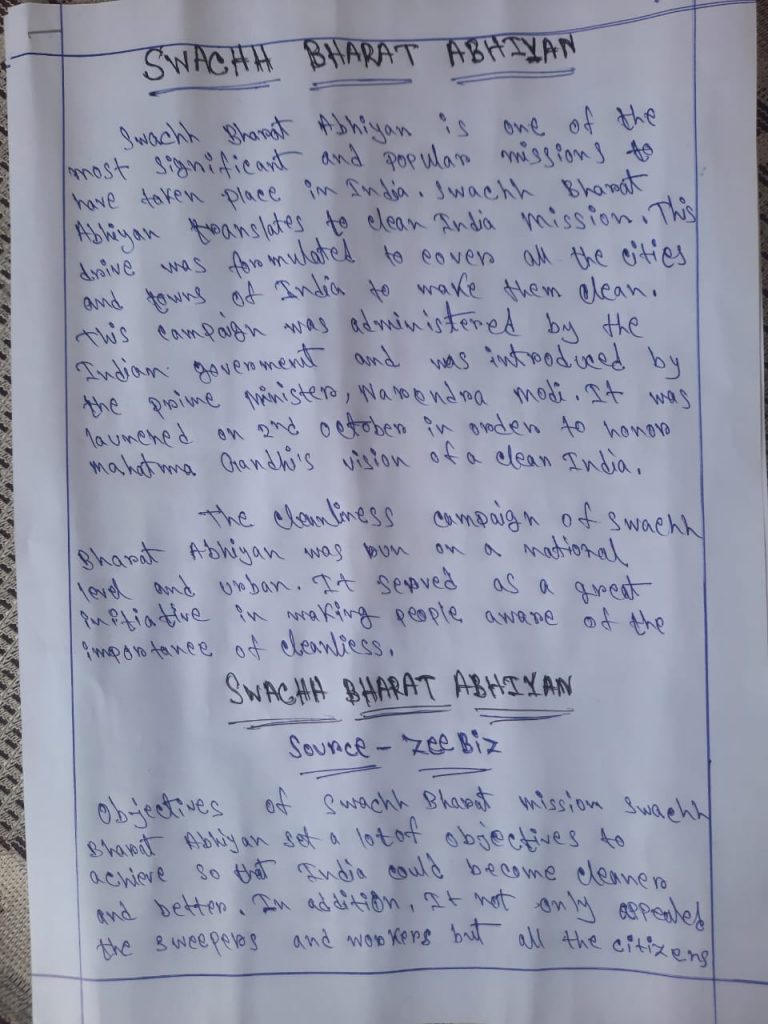 SWACHH BHARAT ABHIYAN
Swachh Bharat Abhiyan is one of the
most significant and popular missions to
have taken place in India. Swachh Bharat
Abhiyan translates to clean India mission. This
drive was formulated to cover all the cities
and towns of India to make them clean.
This campaign was administered by the
Indian goverment and was introduced by
the prime minister, Narendra modi. It was
launched on 2nd october in order to honor
mahatma Gandhi's vision of a clean India.
The cleanliness campaign of swachh
Bharat Abhiyan was run on a national
level and urban. It served as a great
initiative in making people aware of the
importance of cleanliess.
SWACHH BHARAT ABHIYAN
Source - Zee Biz
Objectives of Swachh Bharat mission swachh
Bharat Abhiyan set a lot of objectives to
achieve so that India could become cleaner
and better. In addition, It not only appealed
the sweepers and workers but all the citizens